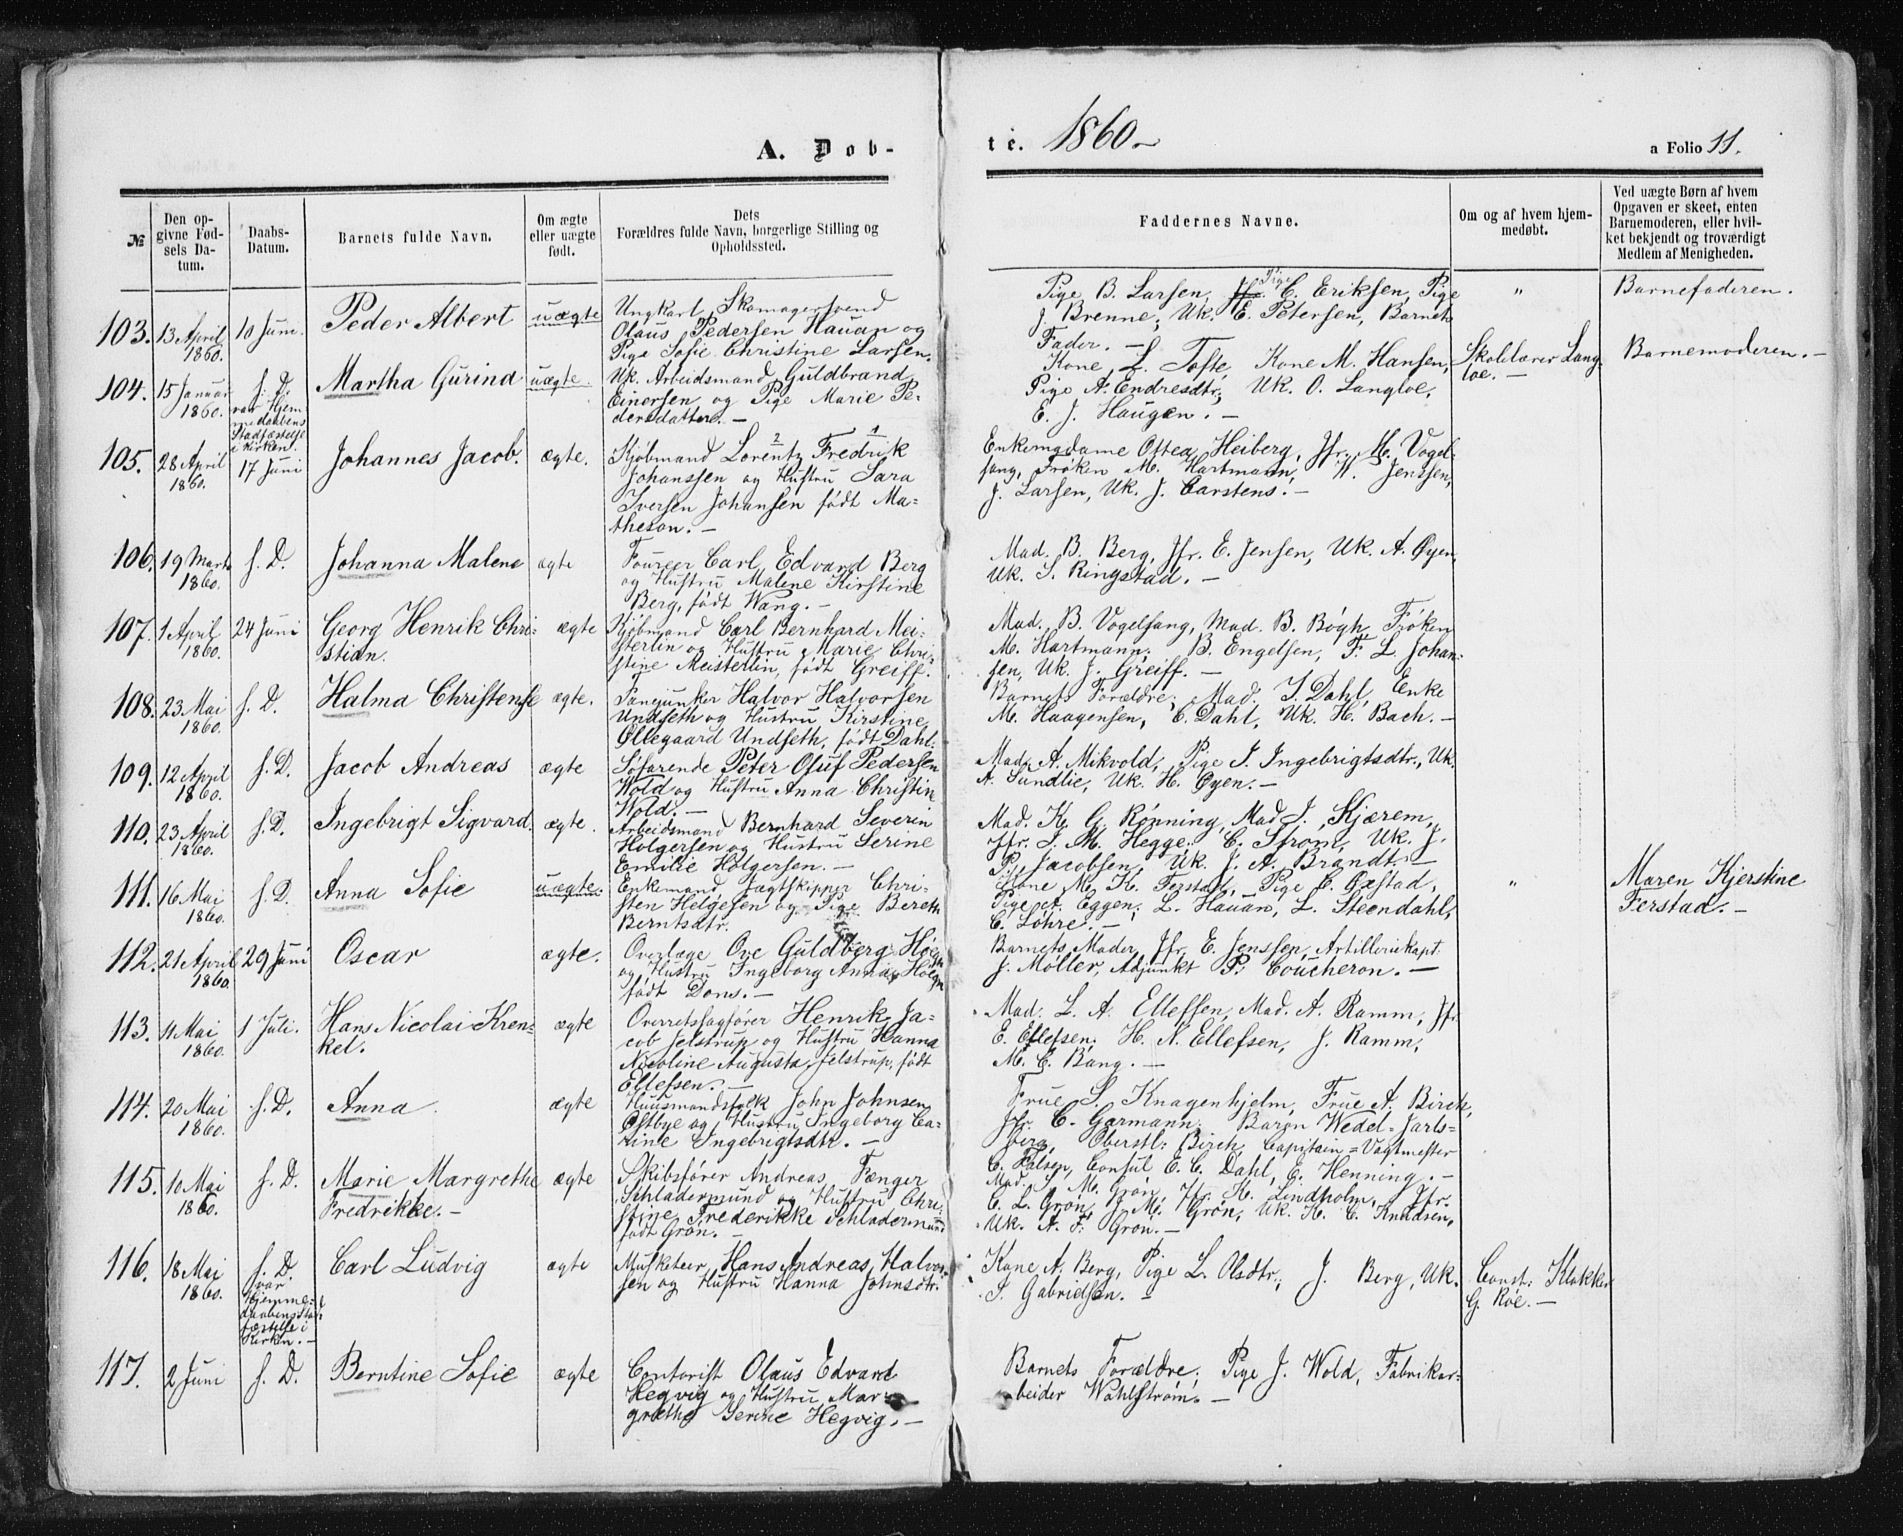 A. Døb-
te. 1860.-
a Folio 11.
№
Den op-
givne Fød-
sels Da-
tum.
Daabs-
Datum.
Barnets fulde Navn.
Om ægte
eller uægte
født.
Dets
Forældres fulde Navn, borgerlige Stilling og
Opholdssted.
Faddernes Navne.
Om og af hvem hjem-
medøbt.
Ved uægte Børn af hvem
Opgaven er skeet, enten
Barnemoderen, eller hvil-
ket bekjendt og troværdigt
Medlem af Menigheden.
103. 13 April
1860.
10 Juni.
Peder Albert
uægte
Ungkarl, Skomagersvend
Olaus Pedersen Hauan og
Pige Sofie Christine Larsen.
Pige B. Larsen, Pige C. Eriksen, Pige
J. Brenne; Uk. E. Petersen, Barnets
Fader. -
"
Barnefaderen.
104. 15 Januar
1860.
s. D.
var Hjem-
medaabens
Stadfæstelse
i Kirken.
Martha Gurina
uægte.
Uk. Arbeidsmand Guldbrand
Einersen og Pige Marie Pe-
dersdatter. -
Kone L. Tofte, Kone M. Hansen,
Pige A. Endresdtr; Uk. O. Langloe,
E. J. Haugen. -
Skolelærer Lang-
loe. -
Barnemoderen. -
105. 28 April
1860.
17 Juni
Johannes Jacob.
ægte.
Kjøbmand Lorentz 2 Fredrik 1
Johanssen og Hustru Sara
Iversen Johansen født Ma-
theson. -
Enkemadame Ostea Heiberg, Jfr. M. Vogel-
sang, Frøken M. Hartmann, W. Jenssen,
J. Larsen, Uk. J. Carstens. -
106. 19 Marts
1860.
s. D.
Johanna Malene
ægte
Foureer Carl Edvard Berg
og Hustru Malene Kirstine
Berg, født Wang. -
Mad. B. Berg, Jfr. E. Jensen, Uk. A. Øyen,
Uk. S. Ringstad. -
107. 1 April
1860.
24 Juni
Georg Henrik Chri-
stian.
ægte
Kjøbmand Carl Bernhard Mei-
sterlin og Hustru Marie Chri-
stine Meisterlin, født Greiff.
Mad. B. Vogelsang, Mad. B. Bøgh, Frøken
M. Hartmann; B. Engelsen, F. L. Johan-
sen, Uk. J. Greiff. -
108. 23. Mai
1860.
s. D.
Halma Christense
ægte.
Fanejunker Halvor Halvorsen
Undseth og Hustru Kirstine
Øllegaard Undseth, født Dahl.
Barnets Forældre; Mad. I. Dahl, Enke
M. Haagensen, C. Dahl, Uk. H. Bach. -
109. 12 April
1860.
s. D.
Jacob Andreas
ægte
Søfarende Peter Oluf Pedersen
Wold og Hustru Anna Christine
Wold. -
Mad. A. Mikvold, Pige I. Ingebrigtsdtr., Uk.
A. Sundlie, Uk. H. Øyen. -
110. 23 April
1860.
s. D.
Ingebrigt Sigvard.
ægte.
Arbeidsmand Bernhard Severin
Holgersen og Hustru Serine
Emilie Holgersen. -
Mad. K. G. Rønning, Mad. J. Skjærem,
Jfr. I. M. Hegge; C. Strøm, Uk. J.
P. Jacobsen, Uk. J. A. Brandt. -
111. 16 Mai
1860.
s. D.
Anna Sofie
uægte.
Enkemand Jægtskipper Chri-
sten Helgesen og Pige Bereth
Berntsdtr.
Kone M. K. Ferstad, Pige C. Øxstad,
Pige A. Eggen; L. Hauan, L. Steendahl,
C. Løhre. -
"
Maren Kjerstine
Ferstad. -
112. 21 April
1860.
29 Juni
Oscar
ægte.
Overlæge Ove Guldberg Høegh
og Hustru Ingeborg Anna Høegh
født Dons. -
Barnets Moder, Jfr. E. Jenssen, Artillerikapt.
J. Møller, Adjunkt P. Coucheron. -
113. 11 Mai
1860.
1 Juli.
Hans Nicolai Kren-
kel.
ægte
Overretssagfører Henrik Ja-
cob Jelstrup og Hustru Hanna
Nicoline Augusta Jelstrup, født
Ellefsen. -
Mad. L. A. Ellefsen, Mad. A. Ramm, Jfr.
E. Ellefsen; H. N. Ellefsen, J. Ramm,
M. C. Bang. -
114. 20 Mai
1860.
s. D.
Anna
ægte
Huusmandsfolk John Johnsen
Østbye og Hustru Ingeborg Ca-
rine Ingebrigtsdtr. -
Frue S. Knagenhjelm, Frue A. Birch,
Jfr. C. Garmann; Baron Wedel-Jarls-
berg, Oberstl. Birch, Capitain-Vagtmester
C. Falsen, Consul E. C. Dahl, C. Henning. -
115. 10 Mai
1860.
s. D.
Marie Margrethe
Fredrikke. -
ægte
Skibsfører Andreas Fænger
Schladermund og Hustru Chri-
stine Frederikke Schladermund
født Grøn. -
Mad. M. Grøn, Jfr. H. Lindholm, Jfr.
C. L. Grøn, J. M. Grøn, Uk. H. C. Knudsen,
Uk. A. F. Grøn. -
116. 18 Mai
1860.
s. D.
var
Hjemme-
daabens Stad-
fæstelse i
Kirken. -
Carl Ludvig
ægte
Musketeer Hans Andreas Halvor-
sen og Hustru Hanna Johnsdtr.
Kone A. Berg, Pige L. Olsdtr; J. Berg, Uk.
S. Gabrielsen. -
Const. Klokker
G. Röe. -
117. 2 Juni
s. D.
Berntine Sofie
ægte
Contorist Olaus Edvard
Hegvig og Hustru Mar-
grethe Serine Hegvig. -
Barnets Forældre; Pige J. Wold, Fabrikar-
beider Wahlstrøm. -